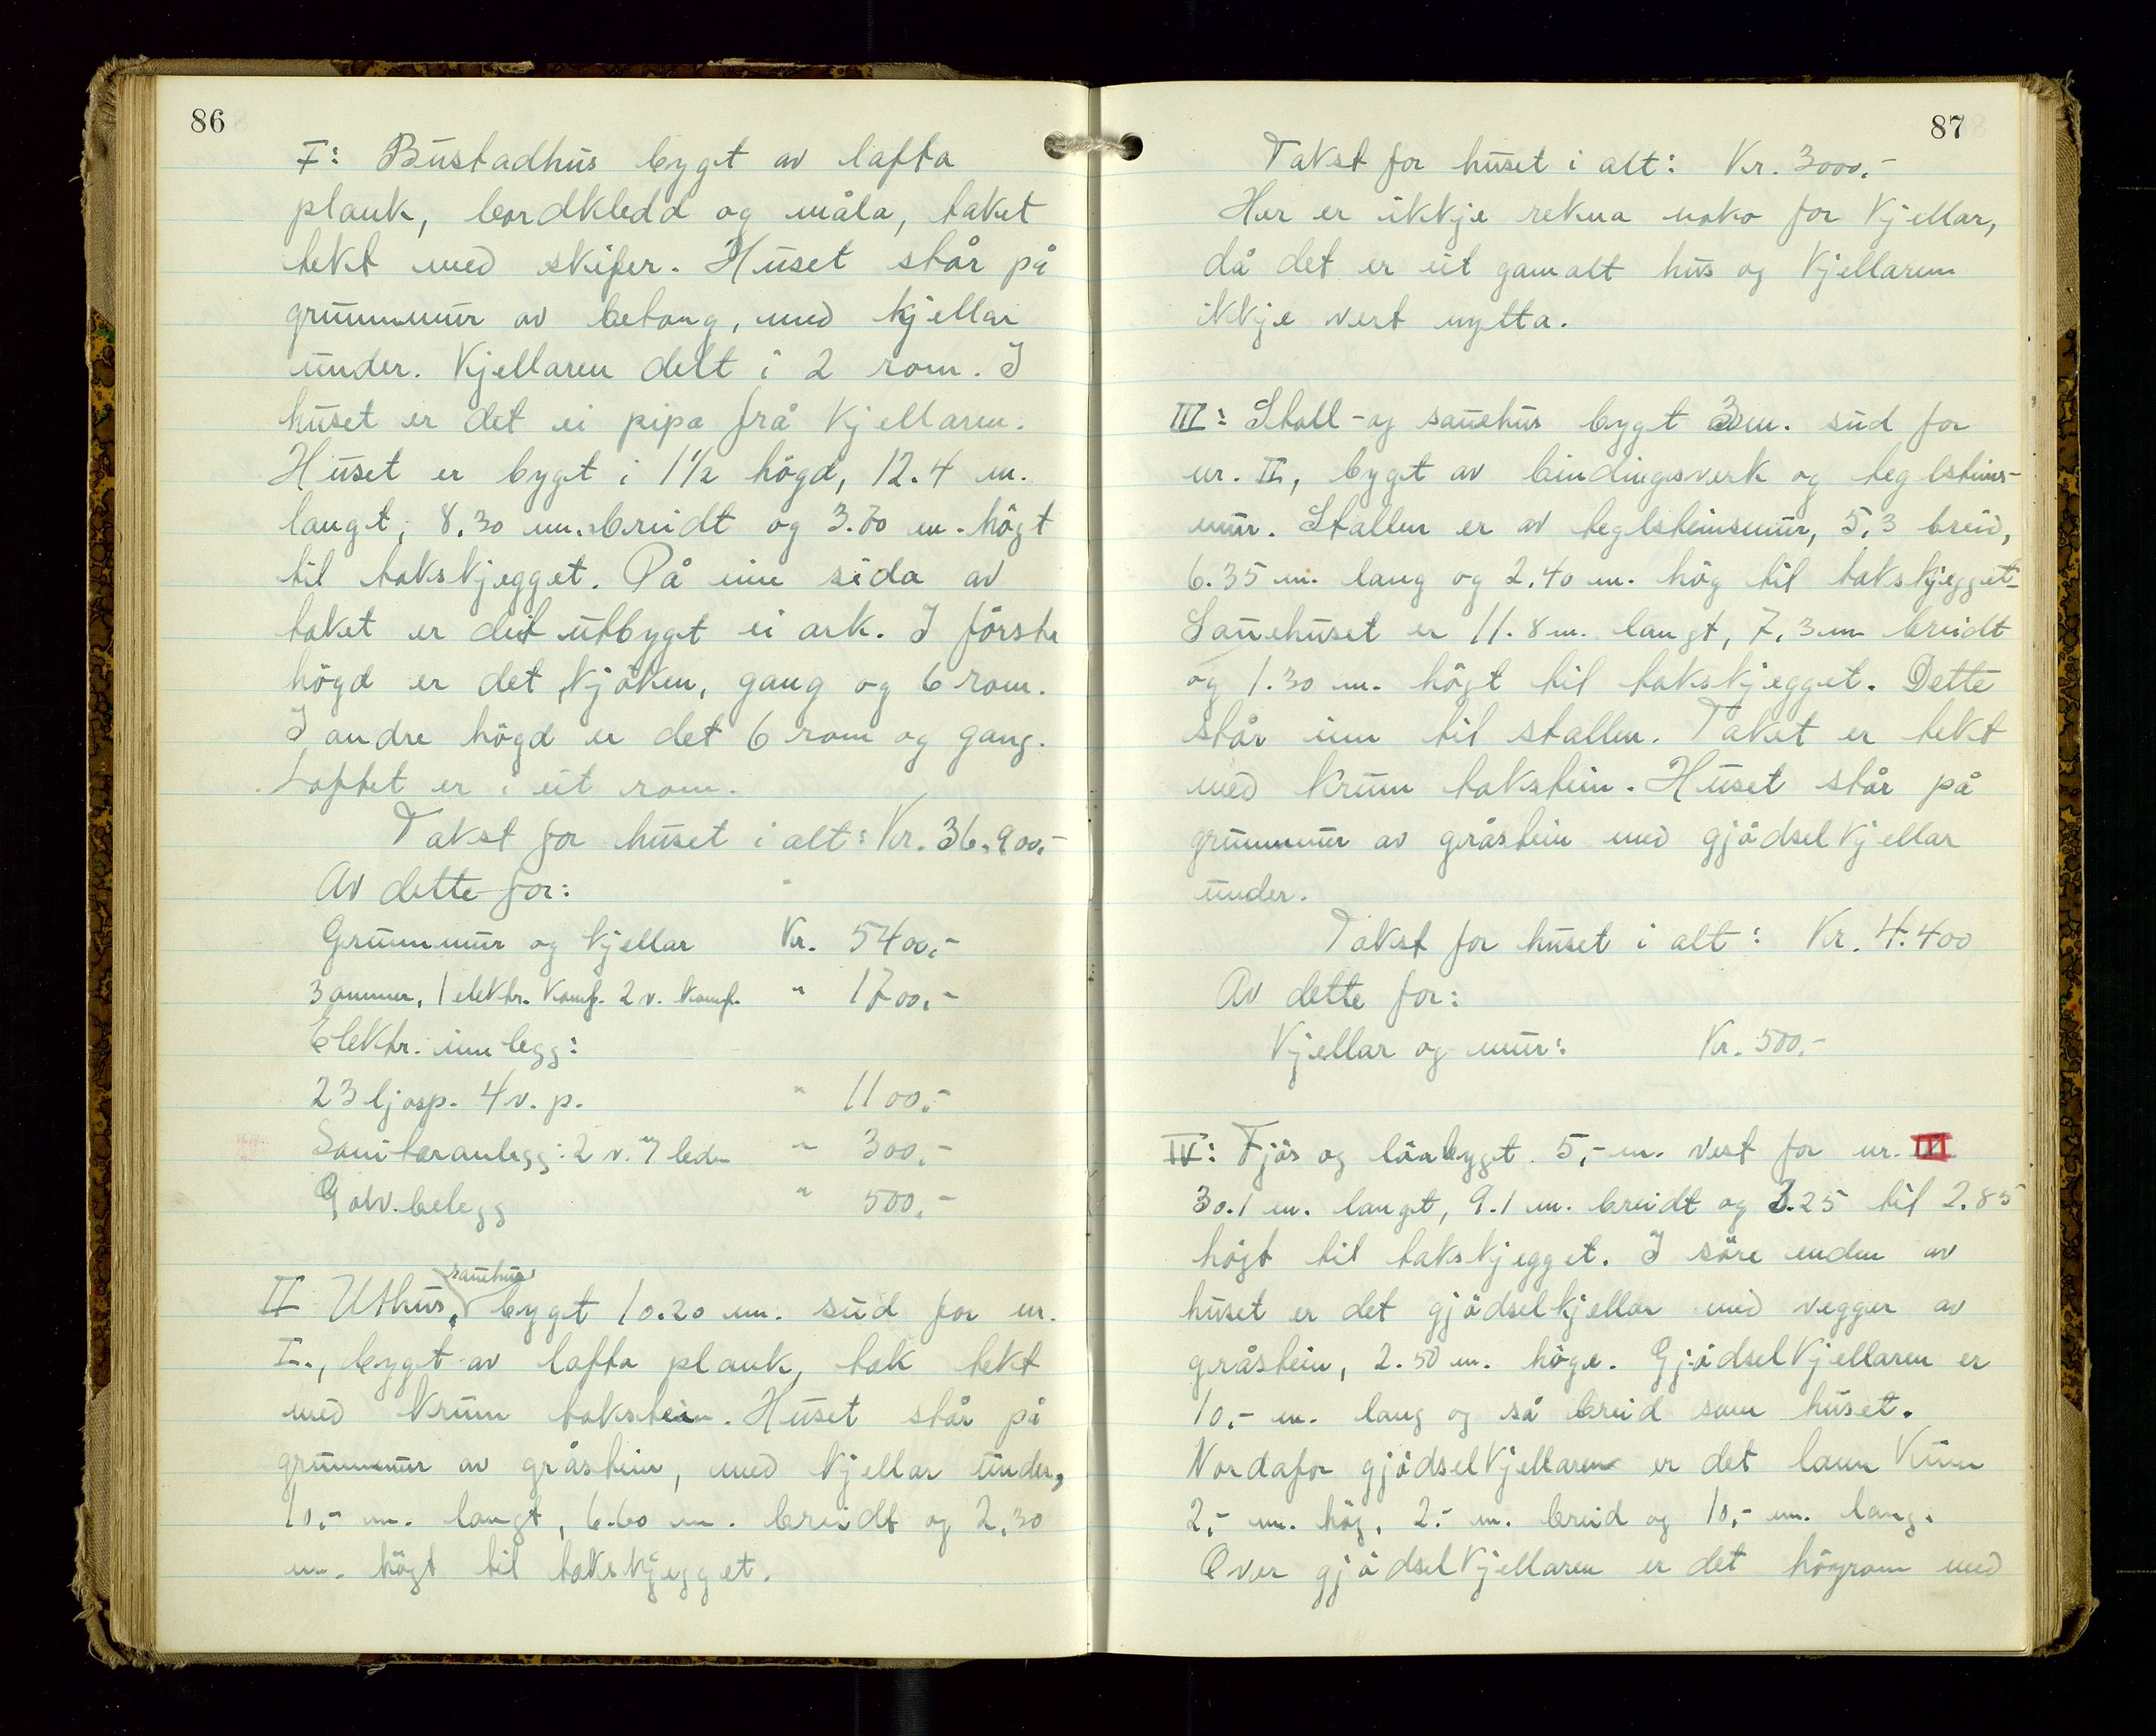 86
I: Bustadhus bygt av lafta
plank, bordkledd og måla, taket
tekt med skifer. Huset står på
grunnmur av betong, med kjellar
under. Kjellaren delt i 2 rom. I
huset er det ei pipa frå kjellaren.
Huset er bygt i 1½ högd, 12.4 m.
langt, 8.30 m. breidt og 3.70 m. högt
til takskjegget. På eine sida av
taket er det utbygt ei ark. I förste
högd er det kjöken, gang og 6 rom.
I andre högd er det 6 rom og gang.
Loftet er i eit rom.
Takst for huset i alt: Kr. 36.900.-
Av dette for:
Grunnmur og kjellar Kr. 5400.-
3 omnar, 1 elektr. komf. 2 v. komf. " 1700.-
Elektr. innlegg:
23 ljosp. 4 v. p. " 1100.-
Sanitæranlegg: 2 v. 7 led " 300.-
Golvbelegg " 500.-
II Uthus, sauehus bygt 10.20 m. sud for nr.
I., bygt av lafta plank, tak tekt
med krum takstein. Huset står på
grunnmur av gråstein, med kjellar under,
10.- m. langt, 6.60 m. breidt og 2.30
m. högt til takskjegget.
87
Takst for huset i alt: Kr. 3000.-
Her er ikkje rekna noko for kjellar,
då det er eit gamalt hus og kjellaren
ikkje vert nytta.
III: Stall- og sauehus bygt 3 m. sud for
nr. II, bygt av bindingsverk og teglsteins-
mur. Stallen er av teglsteinsmur, 5.3 breid,
6.35 m. lang og 2.40 m. hög til takskjegget.
Sauehuset er 11.8 m. langt, 7.3 m breidt
og 1.30 m. högt til takskjegget. Dette
står inn til stallen. Taket er tekt
med krum takstein. Huset står på
grunnmur av gråstein med gjödselkjellar
under.
Takst for huset i alt: Kr. 4.400
Av dette for:
Kjellar og mur: Kr. 500.-
IV: Fjös og löa bygt 5,- m. vest for nr. III
30.1 m. langt, 9.1 m. breidt og 3.25 til 2.85
högt til takskjegget. I söre enden av
huset er det gjödselkjellar med vegger av
gråstein, 2.50 m. höge. Gjödselkjellaren er
10,- m. lang og så breid som huset.
Nordafor gjödselkjellaren er det laun
2,- m. hög, 2.- m. breid og 10,- m. lang.
Over gjödselkjellaren er det högrom med